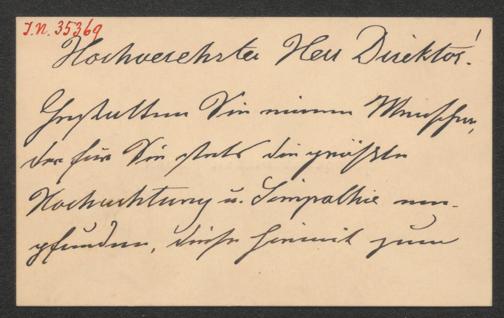 I.N. 35369
Hochverehrter Herr Direktor!
Gestatten Sie einem Menschen,
der für Sie stets die größte
Hochachtung u. Simpathie em-
pfunden, diese hiemit zum